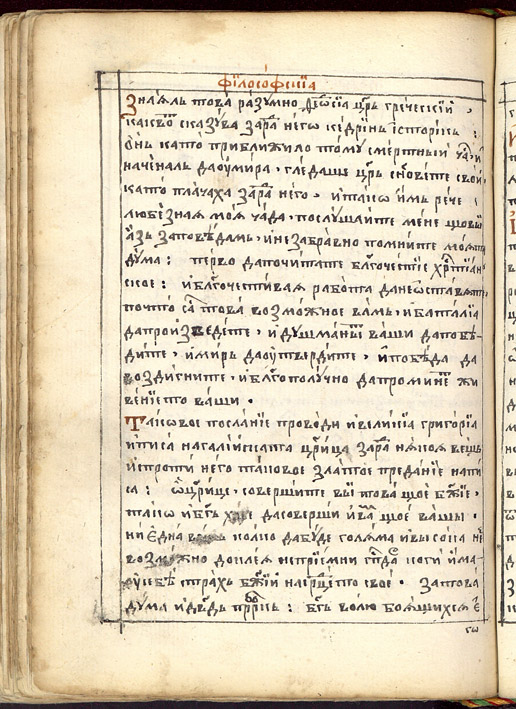 филосѡфскїѧ
Знаѧлъ това разꙋмно ѳеѡⷣсїа цр҃ъ греческїй ·
како сказꙋва зараⷣ него кедринъ історикъ :
Онъ като приближило томꙋ смертный чаⷭ и
наченалъ да оумира, гледаше цр҃ъ сн҃овете свои
като плачаха зараⷣ него · и такѡ имъ рече ·
любезнаѧ моѧ чада, послꙋшайте мене що вы
азъ заповѣдамь, и незабравно помните моѧта
дꙋма : перво да почитате бл҃гочестїе хрⷭтїан
ское : и бл҃гочестиваѧ работа да не ѡставѧте,
почто са това возможное вамъ, и баталїа
да произведете, и дꙋшманы ваши да побѣ-
дите, и миръ да оутвердите, и побѣда да
воздигните, и бл҃гополꙋчно да промине жи
венїето ваши ·
Таковое посланїе проводи и великїа григорїа
и писа на галїканта цр҃ица зараⷣ нѧкоѧ вещь
и спроти него таковое златое преданїе напи
са : ѡ цр҃ице, совершите вы това щое бж҃їе,
такѡ и бг҃ъ да соверши и ва щое вашы ·
ни една вещъ колко да бꙋде голѧма и высока не
возможно до неѧ непрїемни гдⷭа коги има-
у себѣ страхъ бж҃їй на срⷣцето свое · За това
дꙋма и дв҃дъ прⷪркъ : бг҃ъ волю боѧщихсѧ е